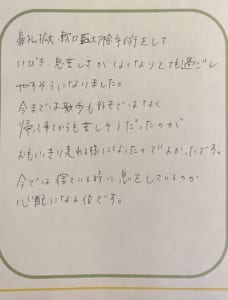 鼻孔拡大、軟口蓋切除手術をして、
いびき、息苦しさがなくなりとても過ごし
やすそうになりました。
今までは散歩も好きではなく
帰って来てからも苦しそうだったのが
おもいっきり走れる様になったのでよかったです。
今では寝ている時に息をしているのか
心配になる位です。